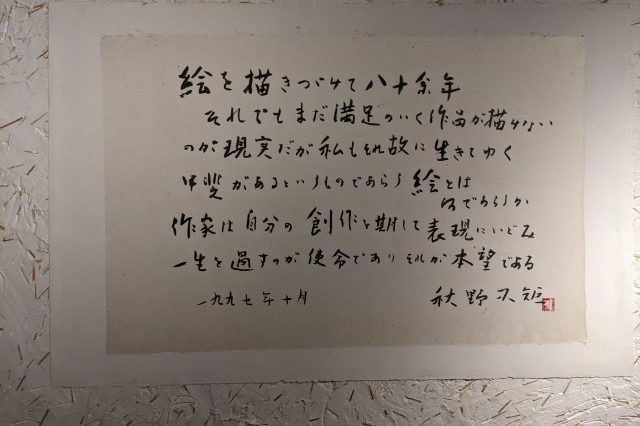 絵を描きつゞけて八十余年
それでもまだ満足のいく作品が描けない
のが現実だが私もそれ故に生きてゆく
甲斐があるというものであらう 絵とは
何であらうか
作家は自分の創作を期して表現にいどみ
一生を過すのが使命でありそれが本望である
一九九七年十月 秋野不矩